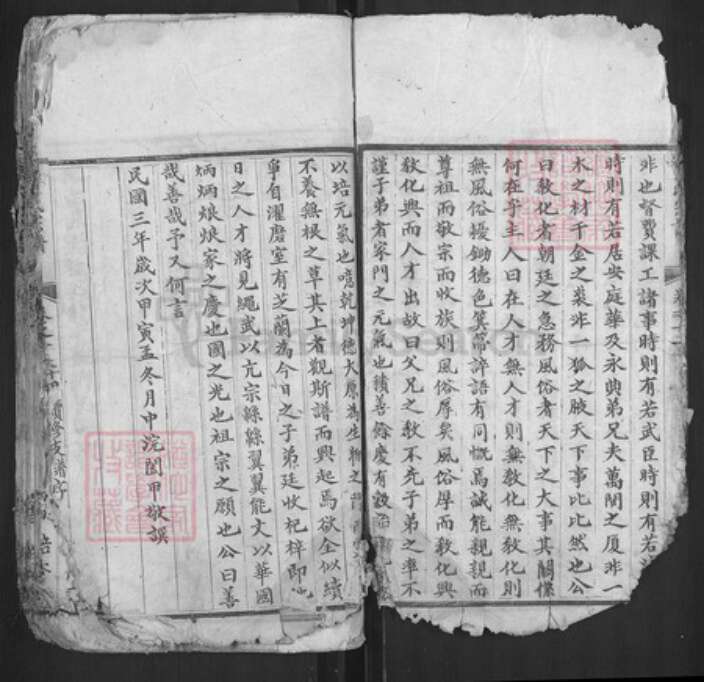 非也督費課工諸事時則有若武臣時則有若
時則有若居安庭華及永典弟兄夫萬間之厦非一
木之材千金之裘非一狐之腋天下事比比然也公
曰教化者朝廷之急務風俗者天下之大事其關係
何在乎主人曰在人才無人才則無教化無教化則
無風俗擾鋤德色箕箒誶語有同慨焉誠能親親而
尊祖而敬宗而收族則風俗厚矣風俗厚而教化興
教化興而人才出故曰父兄之教不先子弟之率不
謹子弟者家門之元氣也積善餘慶有穀
以培元氣也噫乾坤德大原為生物之
不養無根之草其上者觀斯譜而興起焉欲全似續
寧自濯磨室有芝蘭為今日之子弟廷收杞梓即
日之人才將見繩武以亢宗緜緜翼翼能文以華國
炳炳烺烺家之慶也國之光也祖宗之願也公曰善
哉善哉予又何言
民國三年歲次甲寅孟冬月中浣闔甲敬譔
續修支譜序